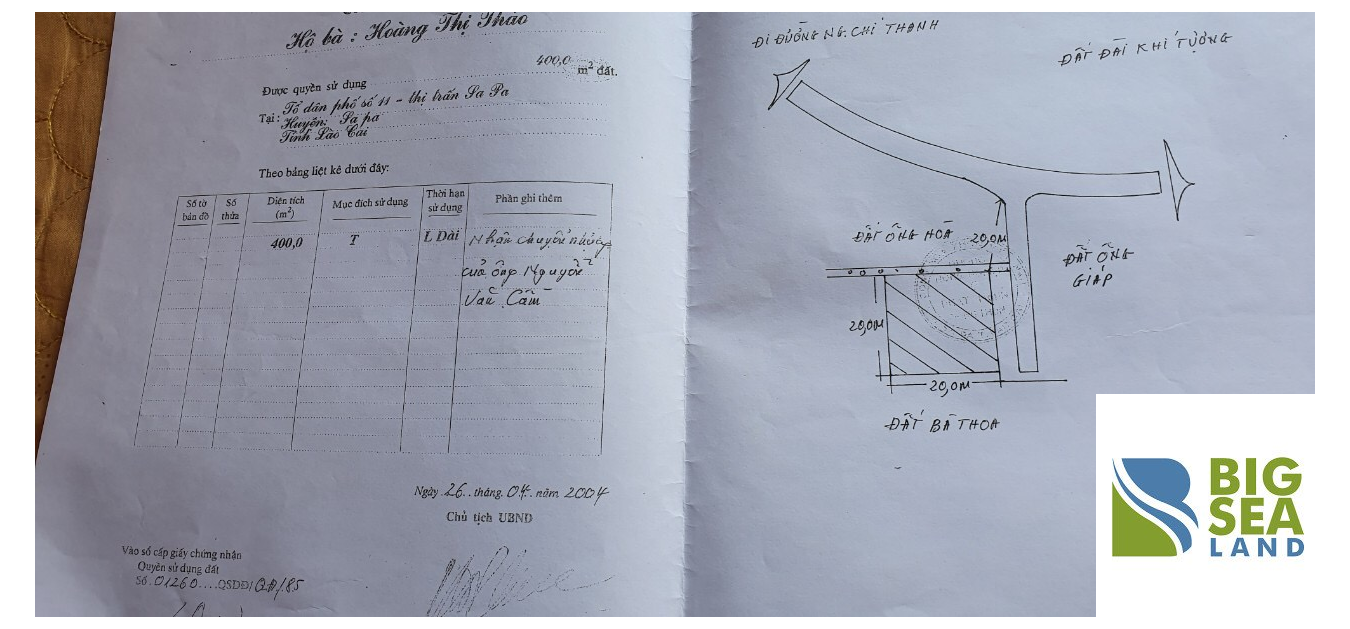 Hộ bà : Hoàng Thị Thảo
400,0 m² đất.
Được quyền sử dụng
Tại: Tổ dân phố số 11 - thị trấn Sa Pa
Huyện: Sa pa
Tỉnh Lào Cai
Theo bảng liệt kê dưới đây:
Số tờ bản đồ
Số thửa
Diện tích (m²)
Mục đích sử dụng
Thời hạn sử dụng
Phần ghi thêm
400,0 T L Dài Nhận chuyển nhượng
của ông Nguyễn
Văn Cẩm
Ngày 26 tháng 04 năm 2004
Chủ tịch UBND
Vào sổ cấp giấy chứng nhận
Quyền sử dụng đất
Số 01260....QSDĐ/QĐ/85
ĐI ĐƯỜNG NG. CHÍ THANH
ĐẤT ĐÀI KHÍ TƯỢNG
ĐẤT ÔNG HOÀ
20,0M
ĐẤT ÔNG
GIÁP
20,0M
20,0M
ĐẤT BÀ THOA
BIG
SEA
LAND